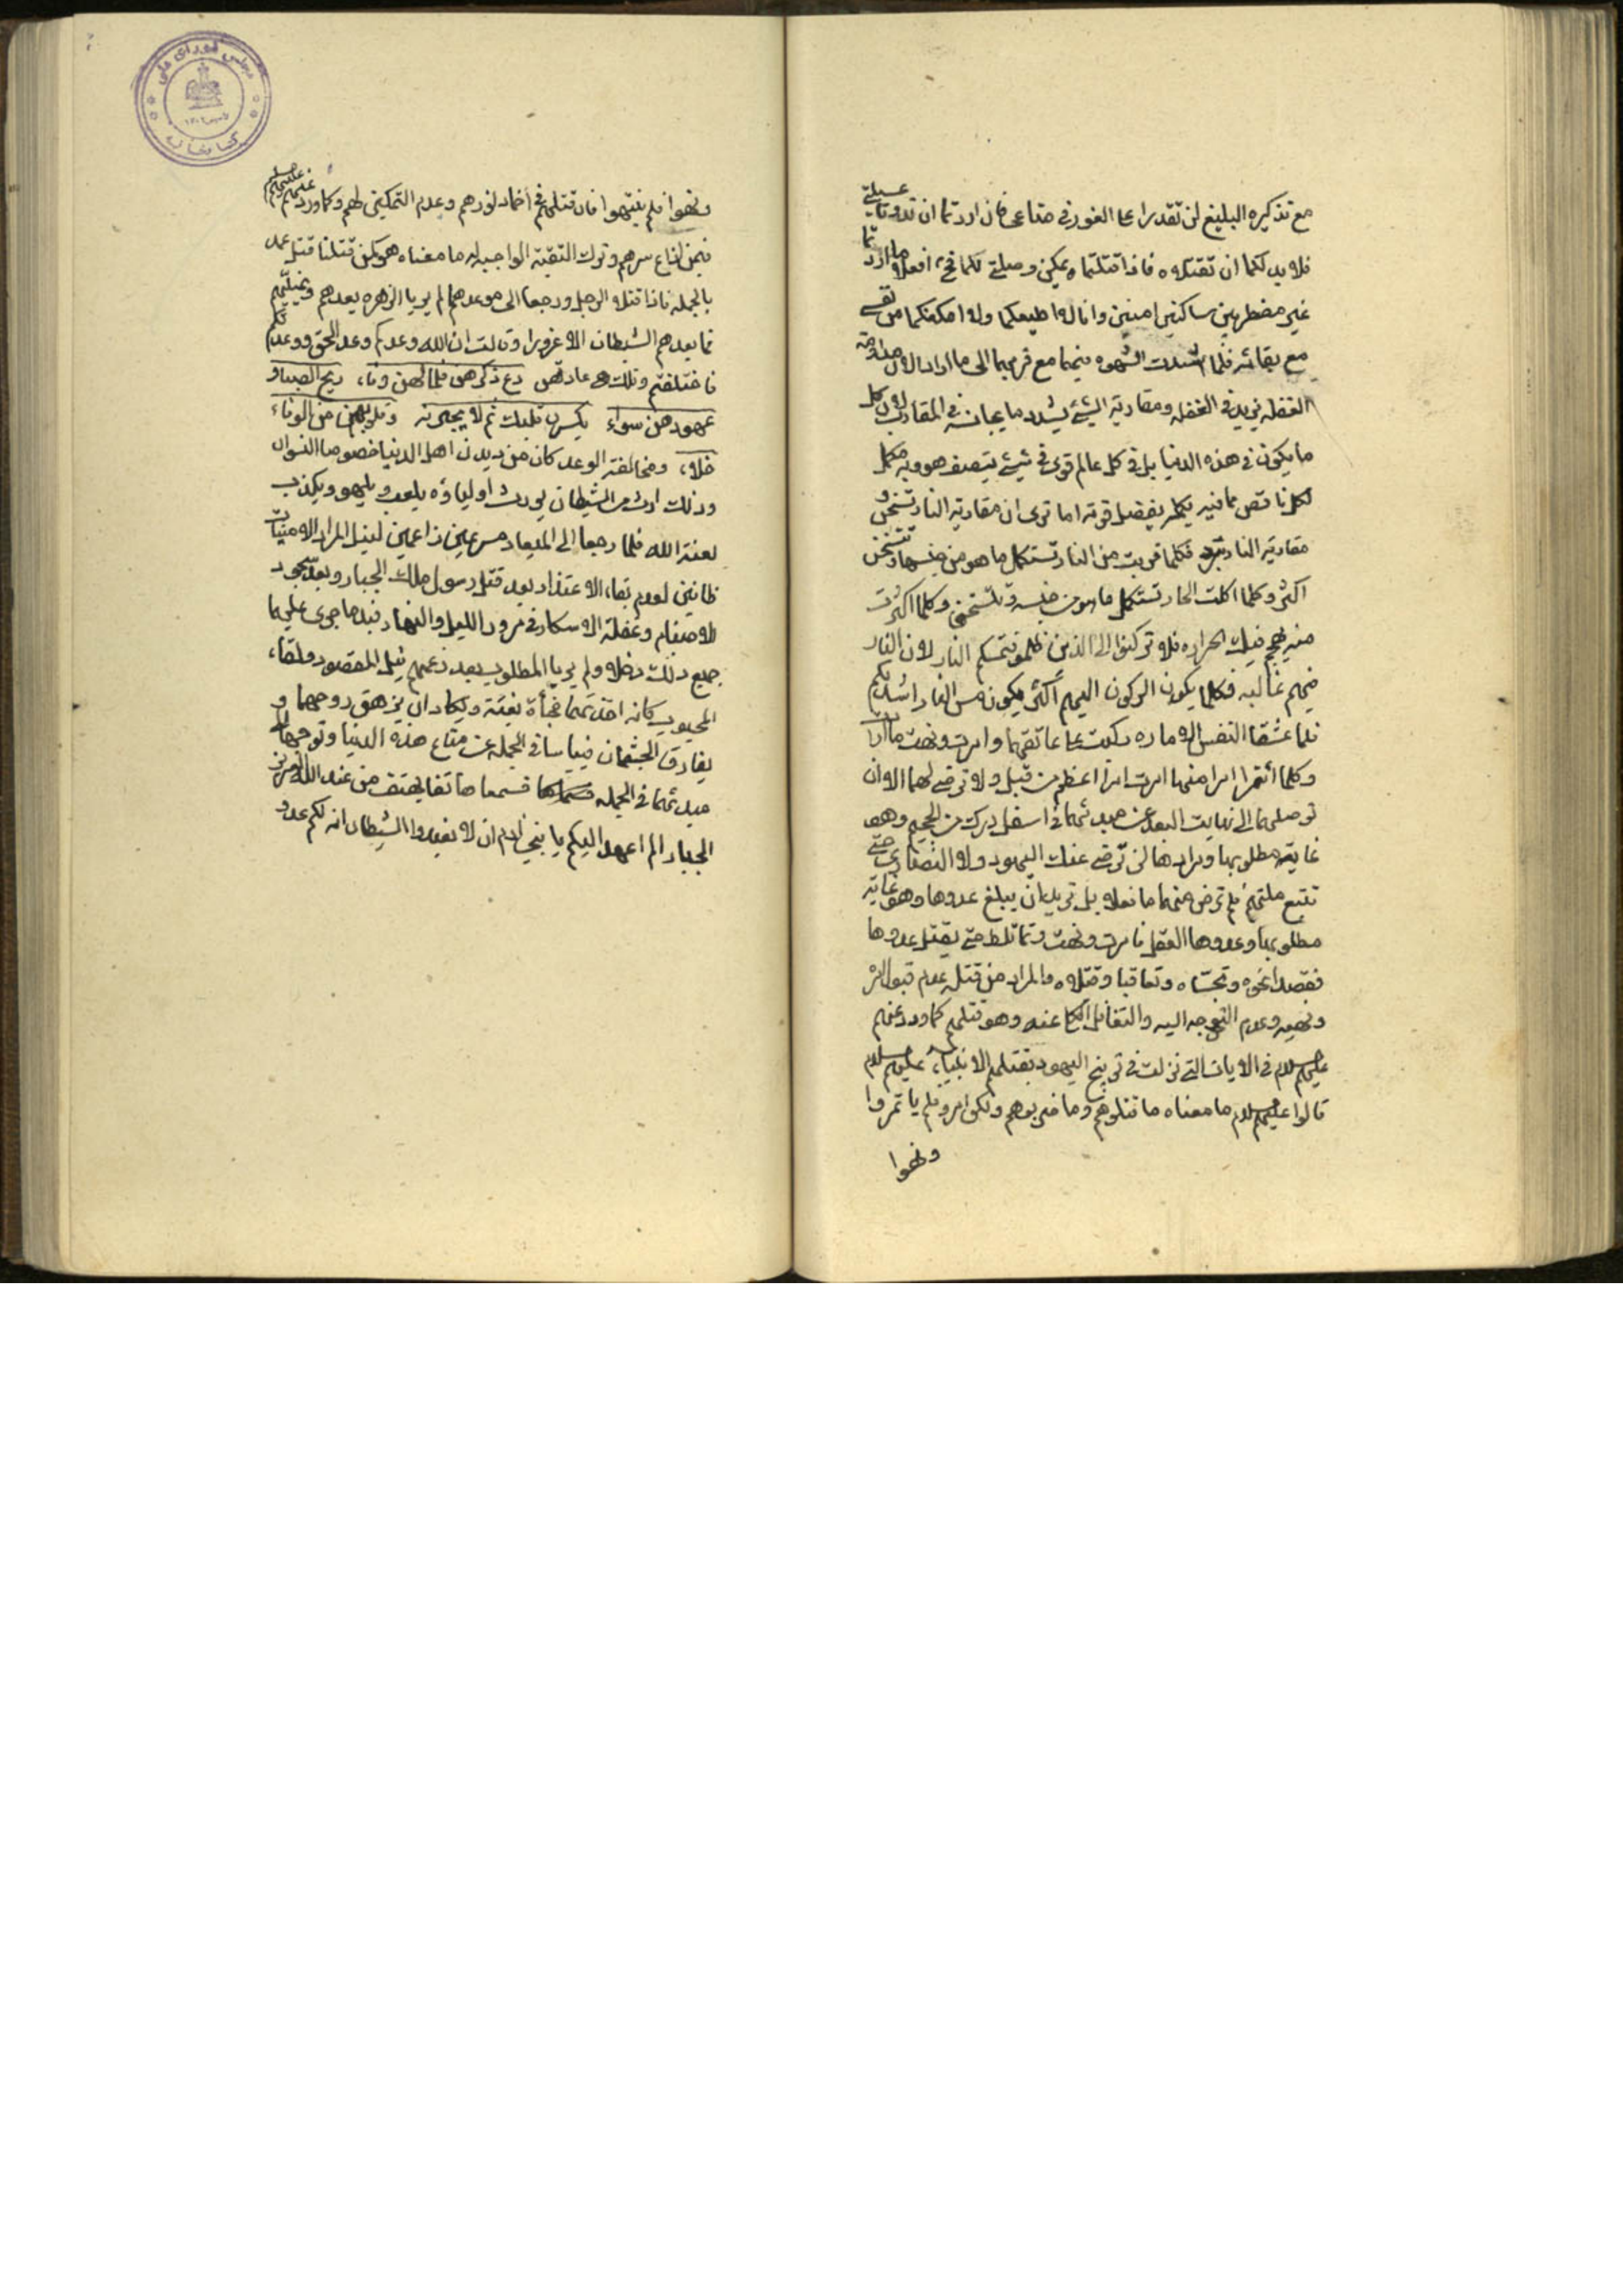 مع تذكيره البليغ لن تقدرا على الفوز في متاعي فان اردتما ان تدوقا عسيلتي
فلابد لكما ان تقتلاه فاذا قتلتماه يمكن وصلتي لكما فح افعلا ما اردتما
غير مضطربين ساكنين امنين وانا لا اطيعكما ولا امكنكما من نفسي
مع بقائه فلما اشتدت الشهوه فيهما مع قربهما الى ما ارادا لان مداومة
الغفلة يزيد في الغفله ومقاربة الشئ يشدد ما يجانسه في المقارب لان كل
ما يكون في هذه الدنيا بل في كل عالم قوى في شئ يتصف هو به مكمل
لكل ناقص مما فيه يكمله بفضل قوته اما ترى ان مقاربة النار تسخن و
مقاربة النار تبرد فكلما قربت من النار تستكمل ما هو من جنسها وتتسخن
اكثر وكلما اكلت الحار تستكمل ما هو من جنسه وتتسخن وكلما اكثرت
منه يهيج فيك الحراره فلا تركنوا الى الذين ظلموا فتمسكم النار لان النار
فيهم غالبه فكلما يكون الركون اليهم اكثر يكون مس النار اشد بكم
فلما عشقا النفس الاماره ركبت على عاتقهما وامرت ونهت ما ارادت
وكلما أتمرا امرا منها امرت امرا اعظم من قبل ولا ترضى لهما الا ان
توصلهما الى نهايت البعد عن مبدئهما في اسفل درك من الجحيم وهو
غاية مطلوبها ومرادها لن ترضى عنك اليهود ولا النصارى حتى
تتبع ملتهم فلم ترض منهما ما فعلا بل تريد ان يبلغ عدوها وهو غاية
مطلوبها وعدوها العقل فامرت ونهت وتماتلط حتى يقتل عدوها
فقصدا نحوه وتجسّاه وتعاقبا وقتلاه والمراد من قتله عدم قبول امره
ونهيه وعدم التوجه اليه والتغافل الكلي عنه وهو قتلهم كما ورد عنهم
عليهم السلام في الايات التي نزلت في توبيخ اليهود بقتلهم الانبياء عليهم السلام
قالوا عليهم السلام ما معناه ما قتلوهم وما ضربوهم ولكن امروا فلم ياتمروا
ونهوا
ونهوا فلم ينتهوا فان قتلهم في اخماد نورهم وعدم التمكين لهم وكما ورد عنهم عليهم السلام
فيمن اذاع سرهم وترك التقية الواجبه له ما معناه هو يمكن قتلنا قتل عمد
بالجمله فاذا قتلا الرجل ورجعا الى موعدهما لم يريا الزهره يعدهم ويمنيهم
فما يعدهم الشيطان الا غرورا وقالت ان الله وعدكم وعد الحق ووعدتكم
فاختلفتم وتلك عادتهن دع ذكرهن فما لهن وفاء ريح الصبا و
عهودهن سواء يكسرن قلبك ثم لا يجبرنه وقلوبهن من الوفاء
خلاء ومخالفة الوعد كان من ديدن اهل الدنيا خصوصا النسوان
وذلك ارث من الشيطان يورث اولياؤه يلعب ويلهو ويكذب
لعنة الله فلما رجعا الى الميعاد مسرعين زاعمين لنيل المراد الامنيات
ظانين لعدم بقاء الاعتذار بعد قتل رسول ملك الجبار وبعد سجود
للاصنام وغفلة الاسكار في مرور الليل والنهار فبدا ما جرى عليهما
جميع ذلك دخلا ولم يريا المطلوب بعد زعمهم نيل المقصود ولقاء
المحبوب كانه اخذتهما فجأة بغتة ويكاد ان يزهق روحهما و
يفارق الجثمان فيياسا في الجمله عن متاع هذه الدنيا وتوجها الى
مبدئهما في الجمله فسمعا هاتفا يهتف من عند الله العزيز
الجبار الم اعهد اليكم يا بني ادم ان لا تعبدوا الشيطان انه لكم عدو
مجلس شورای ملی
کتابخانه